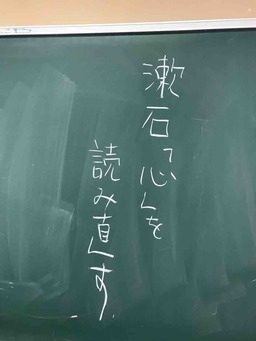 漱石「心」を
読み直す